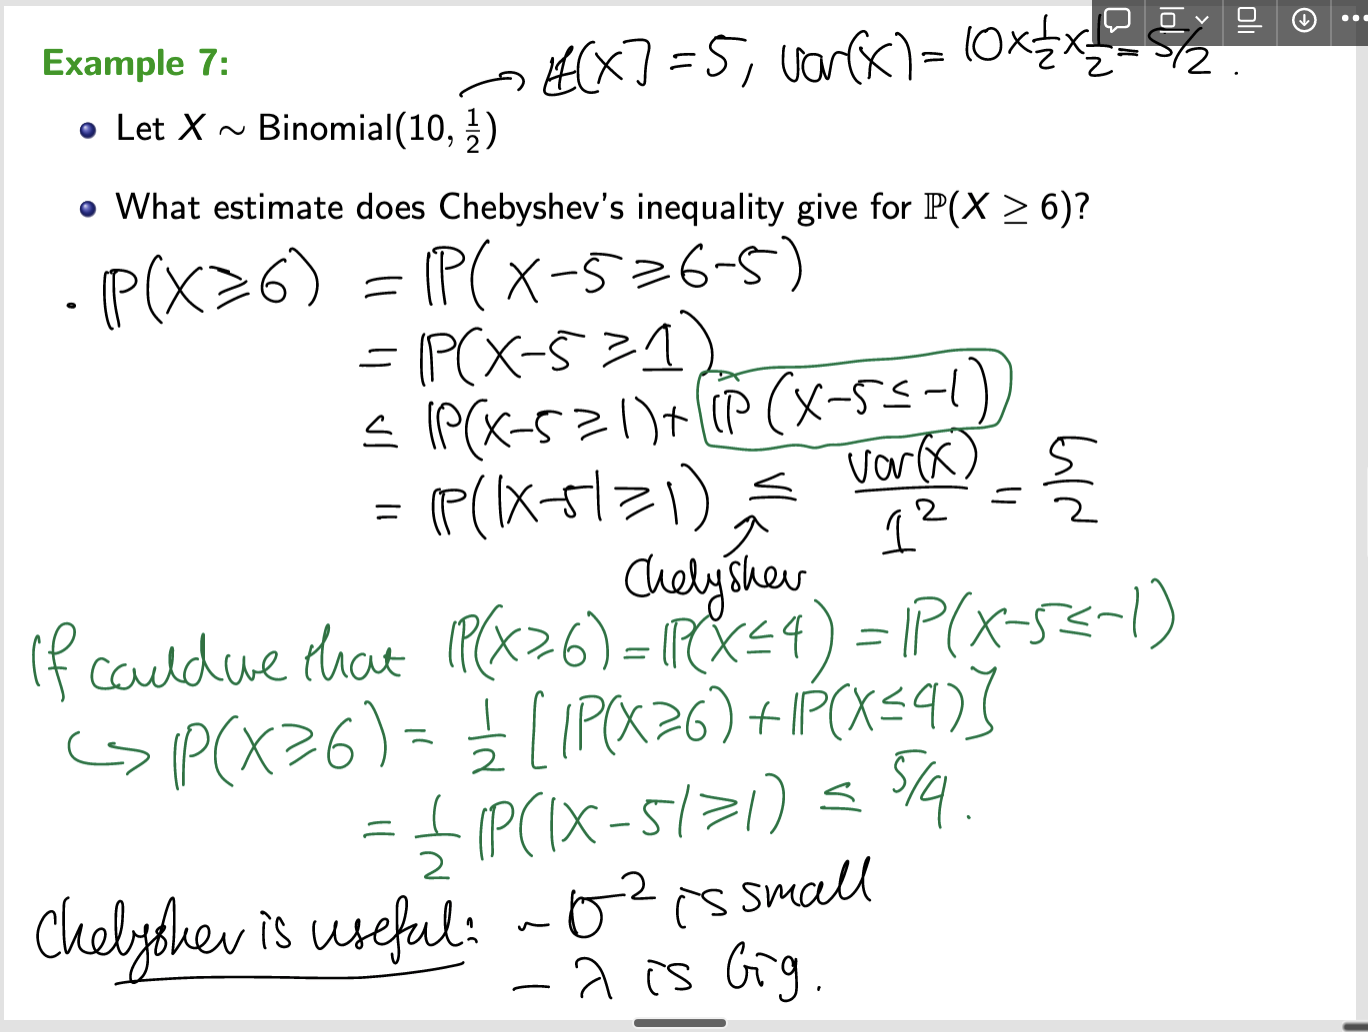 Example 7:
→ 𝔼[X] = 5, var(X) = 10 × 1/2 × 1/2 = 5/2.
• Let X ∼ Binomial(10, 1/2)
• What estimate does Chebyshev's inequality give for ℙ(X ≥ 6)?
· ℙ(X ≥ 6) = ℙ(X − 5 ≥ 6 − 5)
= ℙ(X − 5 ≥ 1)
≤ ℙ(X − 5 ≥ 1) + ℙ(X − 5 ≤ −1)
= ℙ(|X − 5| ≥ 1) ≤ var(X)/1² = 5/2
Chebyshev
If could use that ℙ(X ≥ 6) = ℙ(X ≤ 4) = ℙ(X − 5 ≤ −1)
↪ ℙ(X ≥ 6) = 1/2 [ℙ(X ≥ 6) + ℙ(X ≤ 4)]
= 1/2 ℙ(|X − 5| ≥ 1) ≤ 5/4.
Chebyshev is useful: − σ² is small
− λ is big.